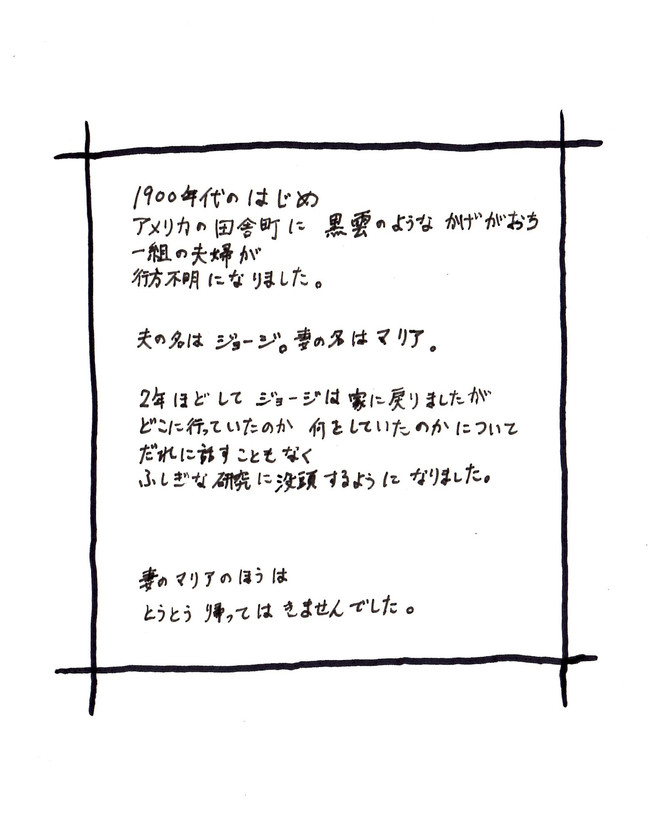 1900年代の はじめ
アメリカの 田舎町に 黒雲のような かげがおち
一組の夫婦が
行方不明になりました。
夫の名は ジョージ。妻の名はマリア。
2年ほどして ジョージは 家に戻りましたが
どこに行っていたのか 何をしていたのかについて
だれに話すこともなく
ふしぎな 研究に没頭するように なりました。
妻のマリアのほうは
とうとう 帰っては きませんでした。